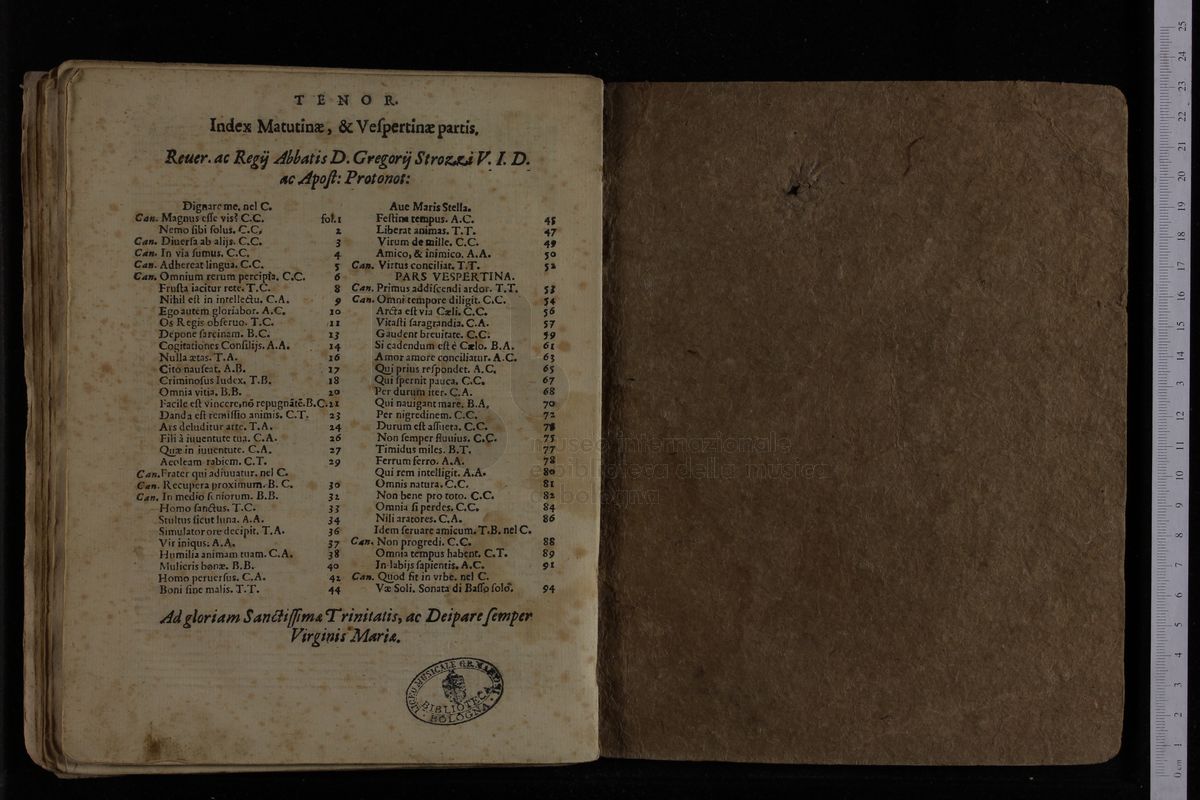 TENOR.
Index Matutinæ, & Veſpertinæ partis.
Reuer. ac Regij Abbatis D. Gregorij Strozzi V. I. D.
ac Apoſt: Protonot:
Dignare me. nel C.
Can. Magnus eſſe vis? C.C. fol.1
Nemo ſibi ſolus. C.C. 2
Can. Diuerſa ab alijs. C.C. 3
Can. In via ſumus. C.C. 4
Can. Adhereat lingua. C.C. 5
Can. Omnium rerum percipia. C.C. 6
Fruſta iacitur rete. T.C. 8
Nihil eſt in intellectu. C.A. 9
Ego autem gloriabor. A.C. 10
Os Regis obſeruo. T.C. 11
Depone ſarcinam. B.C. 13
Cogitationes Conſilijs. A.A. 14
Nulla ætas. T.A. 16
Cito nauſeat. A.B. 17
Criminoſus Iudex. T.B. 18
Omnia vitia. B.B. 20
Facile eſt vincere, nō repugnātē. B.C. 21
Danda eſt remiſſio animis. C.T. 23
Ars deluditur arte. T.A. 24
Fili à iuuentute tua. C.A. 26
Quæ in iuuentute. C.A. 27
Aeoleam rabiem. C.T. 29
Can. Frater qui adiuuatur. nel C.
Can. Recupera proximum. B. C. 30
Can. In medio ſeniorum. B.B. 32
Homo ſanctus. T.C. 33
Stultus ſicut luna. A.A. 34
Simulator ore decipit. T.A. 36
Vir iniqus. A.A. 37
Humilia animam tuam. C.A. 38
Mulieris bonæ. B.B. 40
Homo peruerſus. C.A. 42
Boni ſine malis. T.T. 44
Aue Maris Stella.
Feſtina tempus. A.C. 45
Liberat animas. T.T. 47
Virum de mille. C.C. 49
Amico, & inimico. A.A. 50
Can. Virtus conciliat. T.T. 52
PARS VESPERTINA.
Can. Primus addiſcendi ardor. T.T. 53
Can. Omni tempore diligit. C.C. 54
Arcta eſt via Cæli. C.C. 56
Vitaſti ſaragrandia. C.A. 57
Gaudent breuitate. C.C. 59
Si cadendum eſt è Cælo. B.A. 61
Amor amore conciliatur. A.C. 63
Qui prius reſpondet. A.C. 65
Qui ſpernit pauca. C.C. 67
Per durum iter. C.A. 68
Qui nauigant mare. B.A. 70
Per nigredinem. C.C. 72
Durum eſt aſſueta. C.C.
Non ſemper fluuius. C.C. 75
Timidus miles. B.T. 77
Ferrum ferro. A.A. 78
Qui rem intelligit. A.A. 80
Omnis natura. C.C. 81
Non bene pro toto. C.C. 82
Omnia ſi perdes. C.C. 84
Nili aratores. C.A. 86
Idem ſeruare amicum. T.B. nel C.
Can. Non progredi. C.C. 88
Omnia tempus habent. C.T. 89
In labijs ſapientis. A.C. 91
Can. Quod fit in vrbe. nel C.
Væ Soli. Sonata di Baſſo ſolo. 94
Ad gloriam Sanctiſſimæ Trinitatis, ac Deipare ſemper
Virginis Mariæ.
LICEO MUSICALE G.B. MARTINI
BIBLIOTECA
BOLOGNA
museo internazionale
e biblioteca della musica
di bologna
0 cm 1 2 3 4 5 6 7 8 9 10 11 12 13 14 15 16 17 18 19 20 21 22 23 24 25